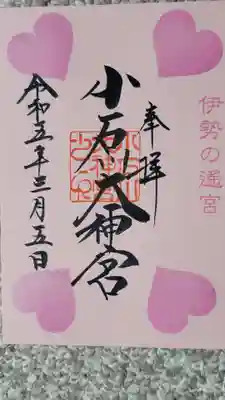 伊勢の遥宮
奉拝
小石川大神宮
令和五年三月五日